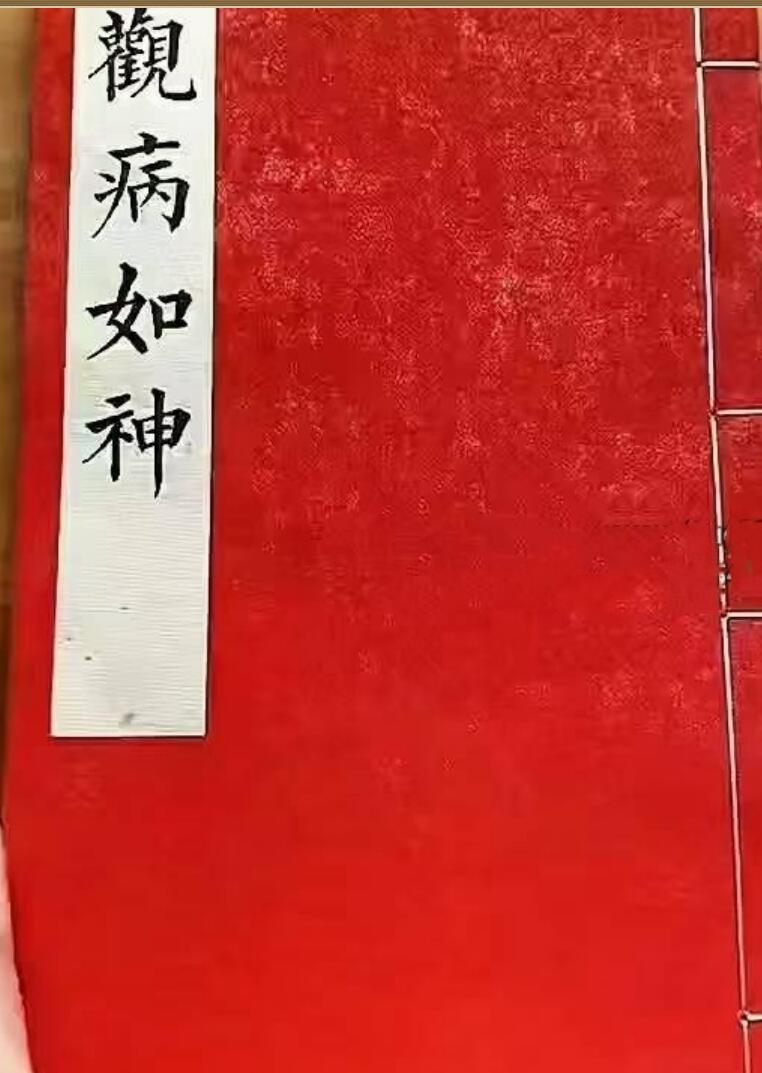 觀病如神